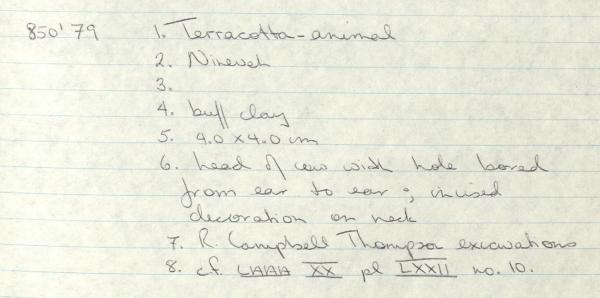 850'79 1. Terracotta-animal
2. Nineveh
3.
4. buff clay
5. 4.0 x 4.0 cm
6. head of cow with hole bored
from ear to ear; incised
decoration on neck
7. R. Campbell Thompson excavations
8. cf. LAAA XX pl LXXII no. 10.